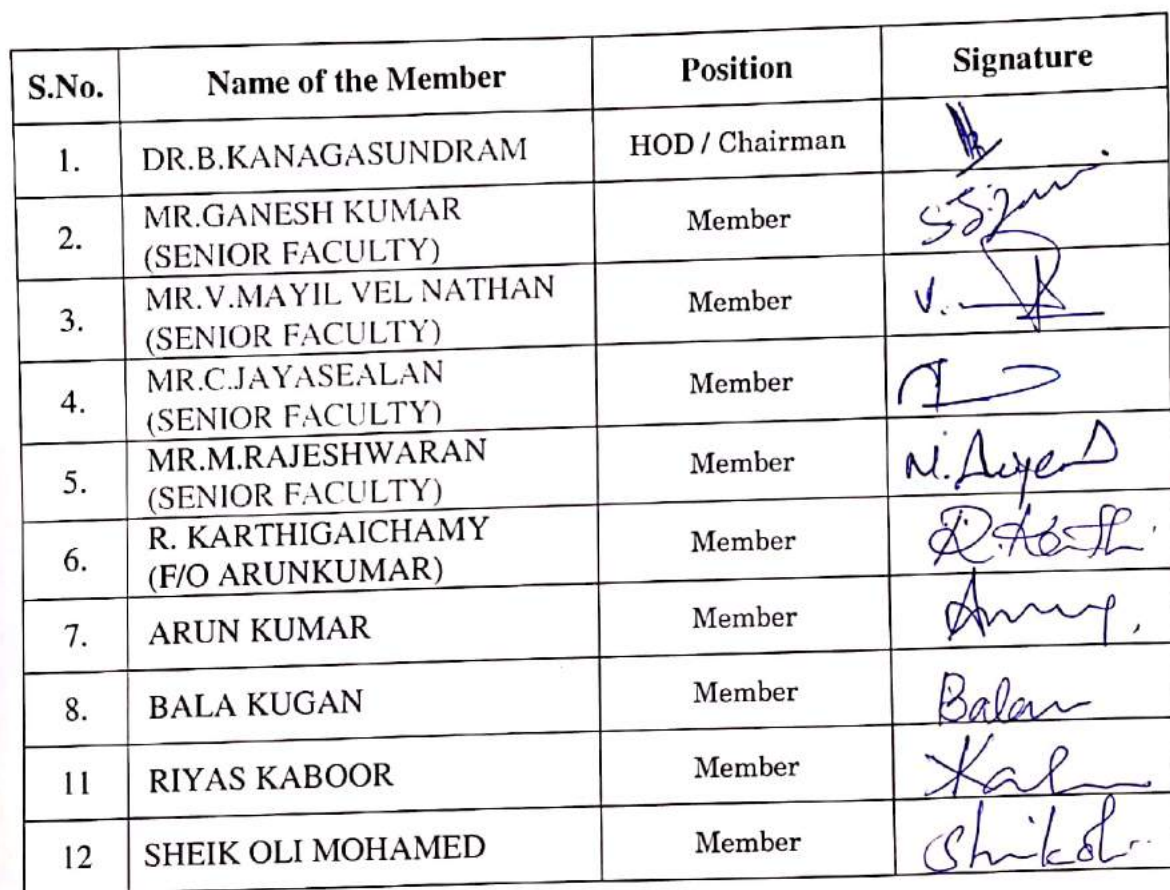 S.No. Name of the Member Position Signature
1. DR.B.KANAGASUNDRAM HOD / Chairman
2. MR.GANESH KUMAR
(SENIOR FACULTY) Member
3. MR.V.MAYIL VEL NATHAN
(SENIOR FACULTY) Member V.
4. MR.C.JAYASEALAN
(SENIOR FACULTY) Member
5. MR.M.RAJESHWARAN
(SENIOR FACULTY) Member
6. R. KARTHIGAICHAMY
(F/O ARUNKUMAR) Member
7. ARUN KUMAR Member
8. BALA KUGAN Member
11 RIYAS KABOOR Member
12 SHEIK OLI MOHAMED Member